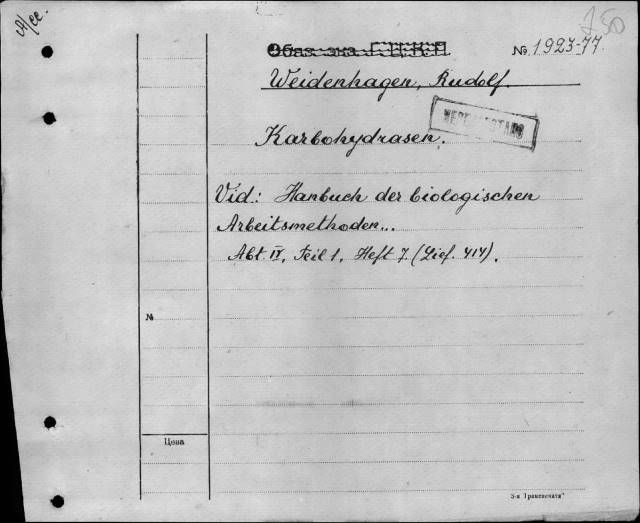 А/се.
Обяз. экз. Г.Ц.К.П.
№ 1923-77.
Weidenhagen, Rudolf.
Karbohydrasen.
Vid.: Hanbuch der biologischen
Arbeitsmethoden...
Abt. IV, Teil 1, Heft 7. (Lief. 414).
№
Цена
3-я „Транспечати"